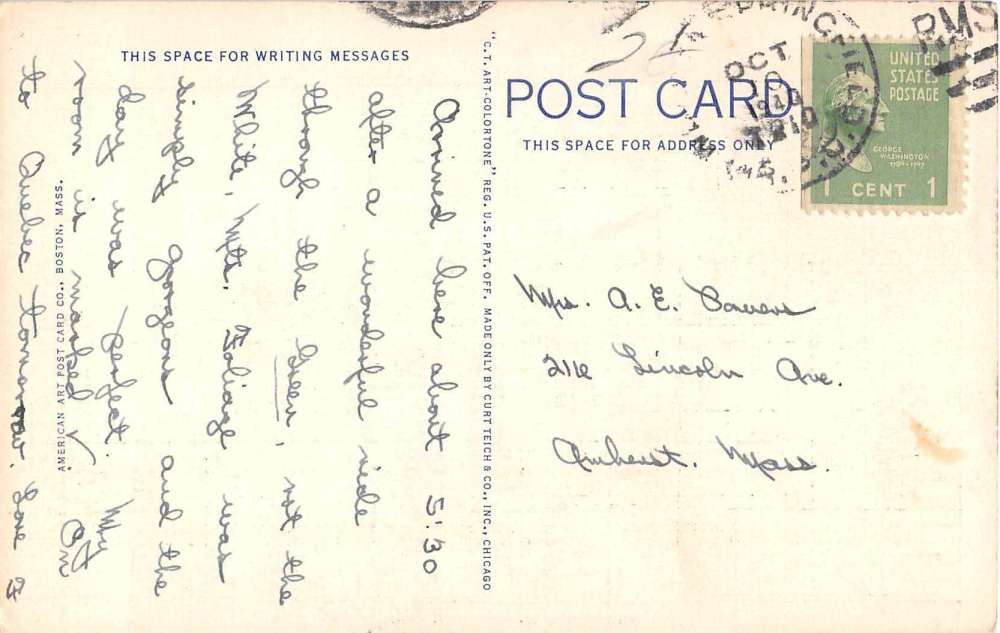 THIS SPACE FOR WRITING MESSAGES
Arrived here about 5:30
after a wonderful ride
through the Green, not the
White, Mts. Foliage was
simply gorgeous and the
day was perfect. My
room is marked √ on
to Quebec tomorrow. Love
AMERICAN ART POST CARD CO., BOSTON, MASS.
"C.T. ART-COLORTONE" REG. U.S. PAT. OFF. MADE ONLY BY CURT TEICH & CO., INC., CHICAGO
POST CARD
THIS SPACE FOR ADDRESS ONLY
OCT
10
1940
R.M.S.
UNITED
STATES
POSTAGE
GEORGE
WASHINGTON
1789-1797
1 CENT 1
Mrs. A. E.
Lincoln Ave.
Amherst. Mass.